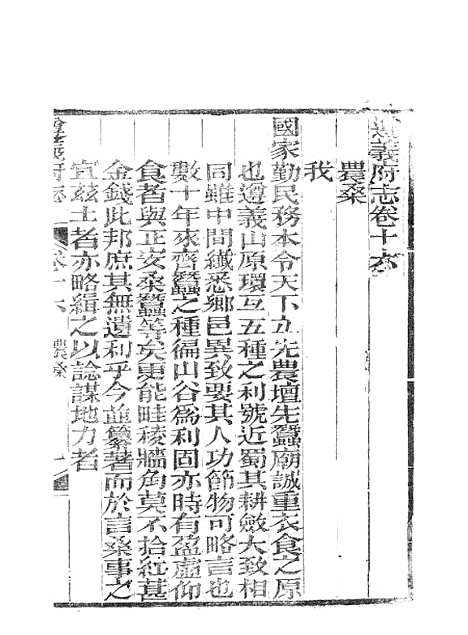 遵義府志卷十六
農桑
我
國家勤民務本令天下立先農壇先蠶廟誠重衣食之原
也遵義山原環互五種之利號近蜀其耕斂大致相
同雖中間纖悉鄉邑異致要其人功節物可略言也
數十年來齊蠶之種徧山谷為利固亦時有盈虛仰
食者與正安桑蠶等矣更能畦稜牆角莫不拾紅葚
金錢此邦庶其無遺利乎今並纂著而於言桑事之
宜茲土者亦略緝之以諗謀地力者
遵義府志
卷十六
農桑
一